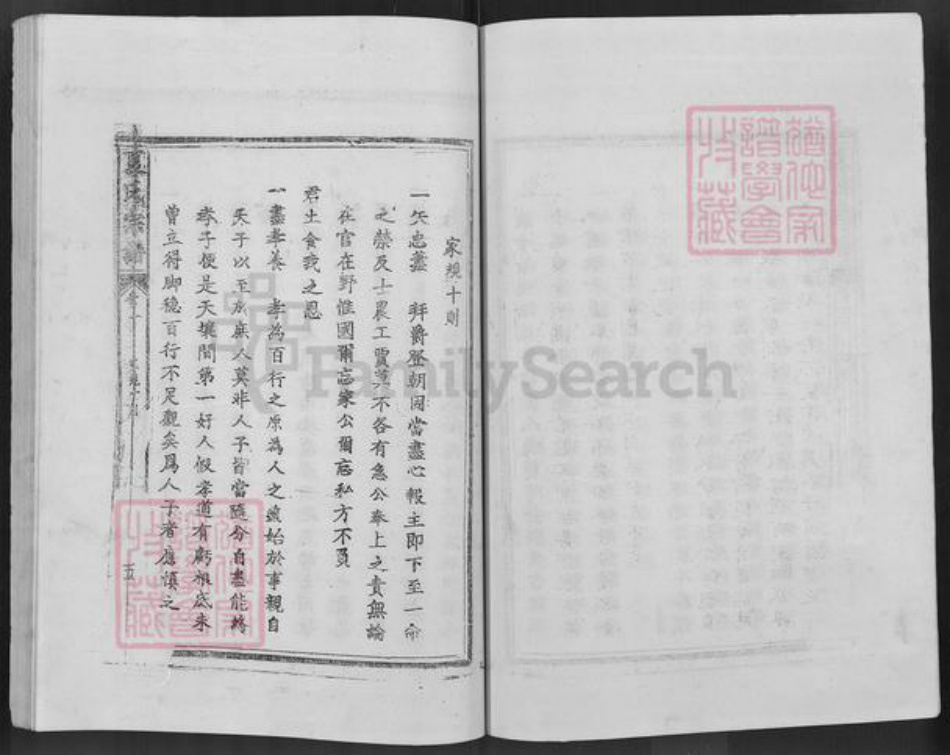 家規十則
一矢忠藎　拜爵登朝固當盡心報主即下至一命
之榮及士農工賈莫不各有急公奉上之責無論
在官在野惟國爾忘家公爾忘私方不負
君土食我之恩
一盡孝養　孝為百行之原為人之道始於事親自
天子以至於庶人莫非人子皆當隨分自盡能將
孝子便是天壤間第一好人假孝道有虧根底未
曾立得脚穩百行不足觀矣為人子者應慎之
氏宗譜
五
譜學會
收藏
FamilySearch